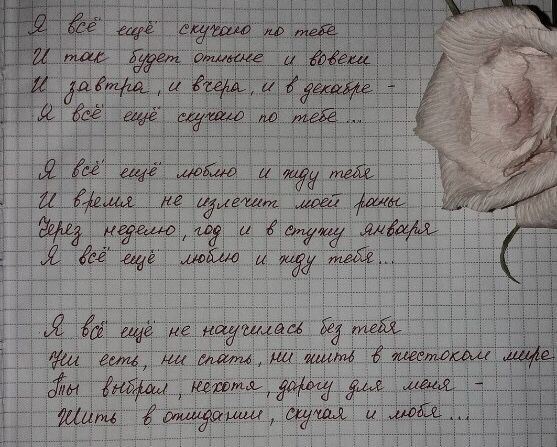 Я всё ещё скучаю по тебе
И так будет отныне и вовеки
И завтра, и вчера, и в декабре -
Я всё ещё скучаю по тебе...
Я всё ещё люблю и жду тебя
И время не излечит моей раны
Через неделю, год и в стужу января
Я всё ещё люблю и жду тебя...
Я всё ещё не научилась без тебя
Ни есть, ни спать, ни жить в жестоком мире
Ты выбрал, нехотя, дорогу для меня -
Жить в ожидании, скучая и любя...